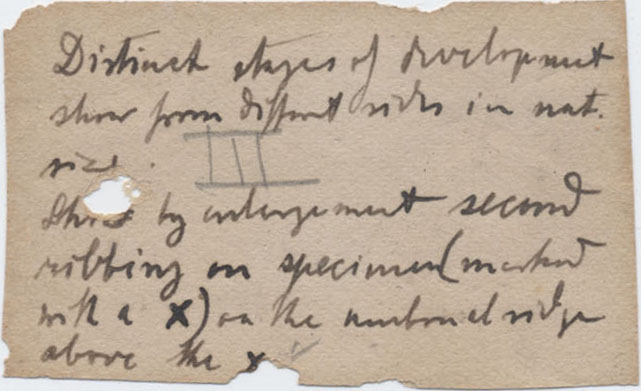 Distinct stages of development
show from different sides in nat.
size.
III
Show by enlargement second
ribbing on specimen (marked
with a x) on the umbonal ridge
above the x